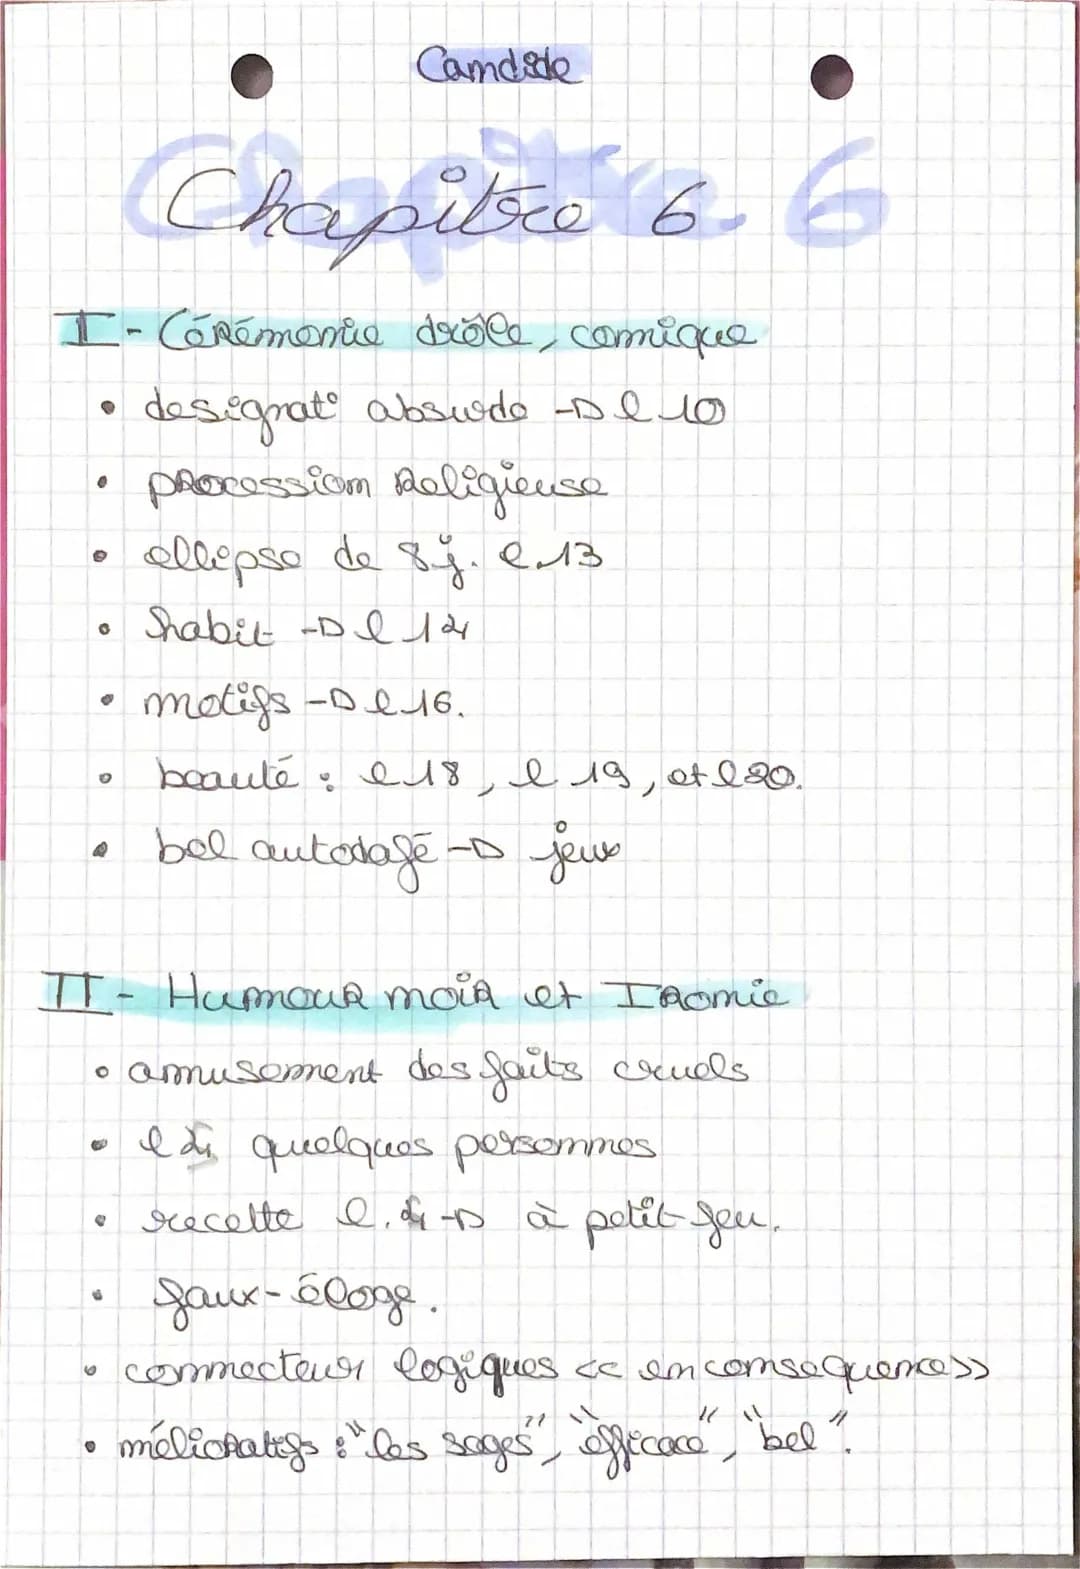 Candide
Chapitre 6
I - Cérémonie drôle, comique
• designat° absurde -> l 10
• procession Religieuse
• ellipse de 8 j. l.13
• habit -> l 14
• motifs -> l 16.
• beauté : l 18, l 19, et l 20.
• bel autodafé -> jeux
II - Humour noir et Ironie
• amusement des faits cruels
• l 4 quelques personnes
• recette l. 4 -> à petit feu.
• faux-éloge.
• connecteur logiques << en consequence >>
• mélioratifs : "les sages", "efficace", "bel".